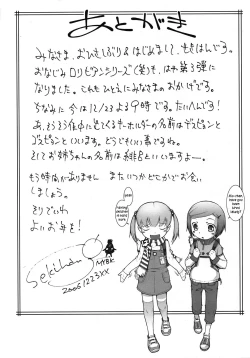 あとがき
みなさま、おひさしぶり&はじめまして、です。
おなじみロリシリーズ(笑)も、はや第3弾に
なりました。これもひとえにみなさまのおかげです。
ちなみに今は12/23よる9時です。たいへんです!
あ、そうそう作中に出てくるキーホルダーの名前はデスピョンと
ゴスピョンといいます。どうでもいい事ですね。
そしてお姉ちゃんの名前はといいますよー。
もう時間がありません またいつかどこかでお会い
しましょう。
それでは
よいお年を!
Sekihan
20061223XX